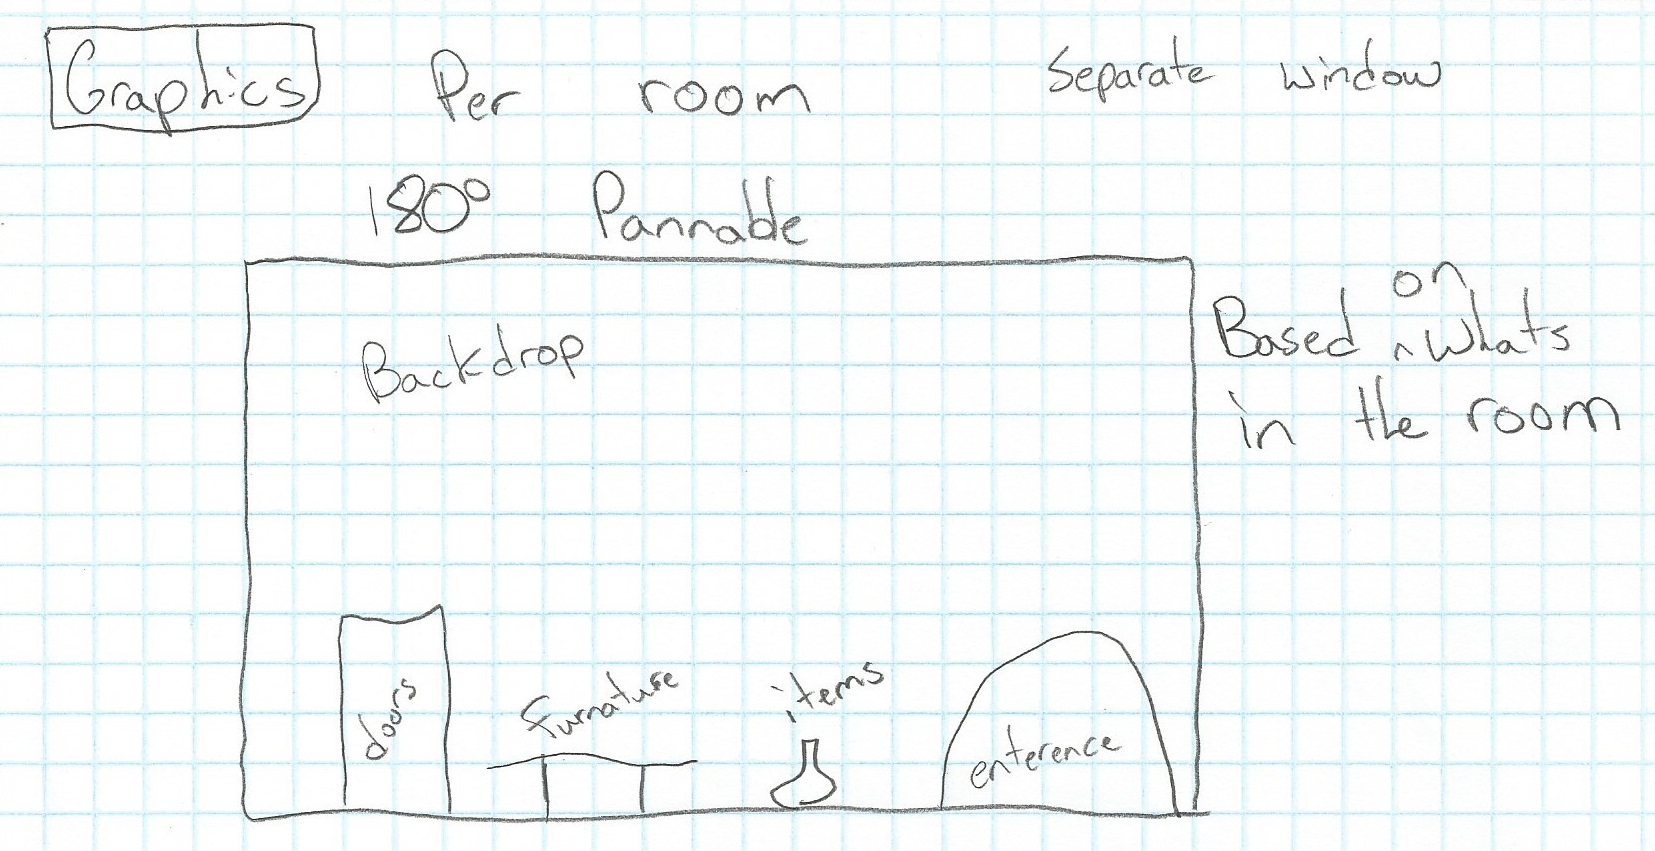 Graphics Per room Separate window
180° Pannable
Based on whats
in the room
Backdrop
doors
furnature
items
enterence